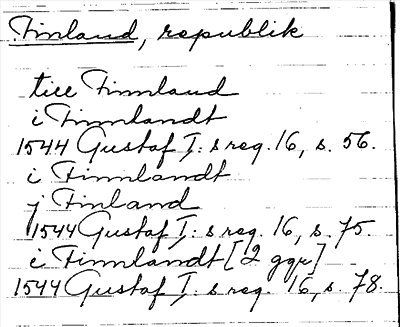 Finland, republik
till Finnland
i Finnlandt
1544 Gustaf I:s reg. 16, s. 56.
i Finnlandt
j Finland
1544 Gustaf I:s reg. 16, s. 75.
i Finnlandt [2 ggr]
1544 Gustaf I:s reg. 16, s. 78.